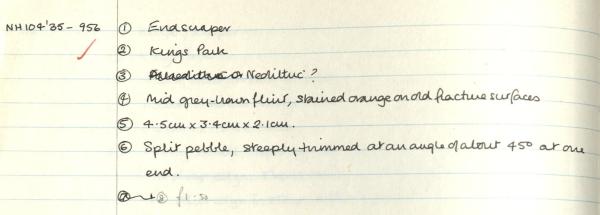 NH104'35-956 ① Endscraper
② Kings Park
③ Neolithic?
④ Mid grey-brown flint, stained orange on old fracture surfaces
⑤ 4.5cm x 3.4cm x 2.1cm.
⑥ Split pebble, steeply trimmed at an angle of about 45° at one
end.
⑧ £1.50